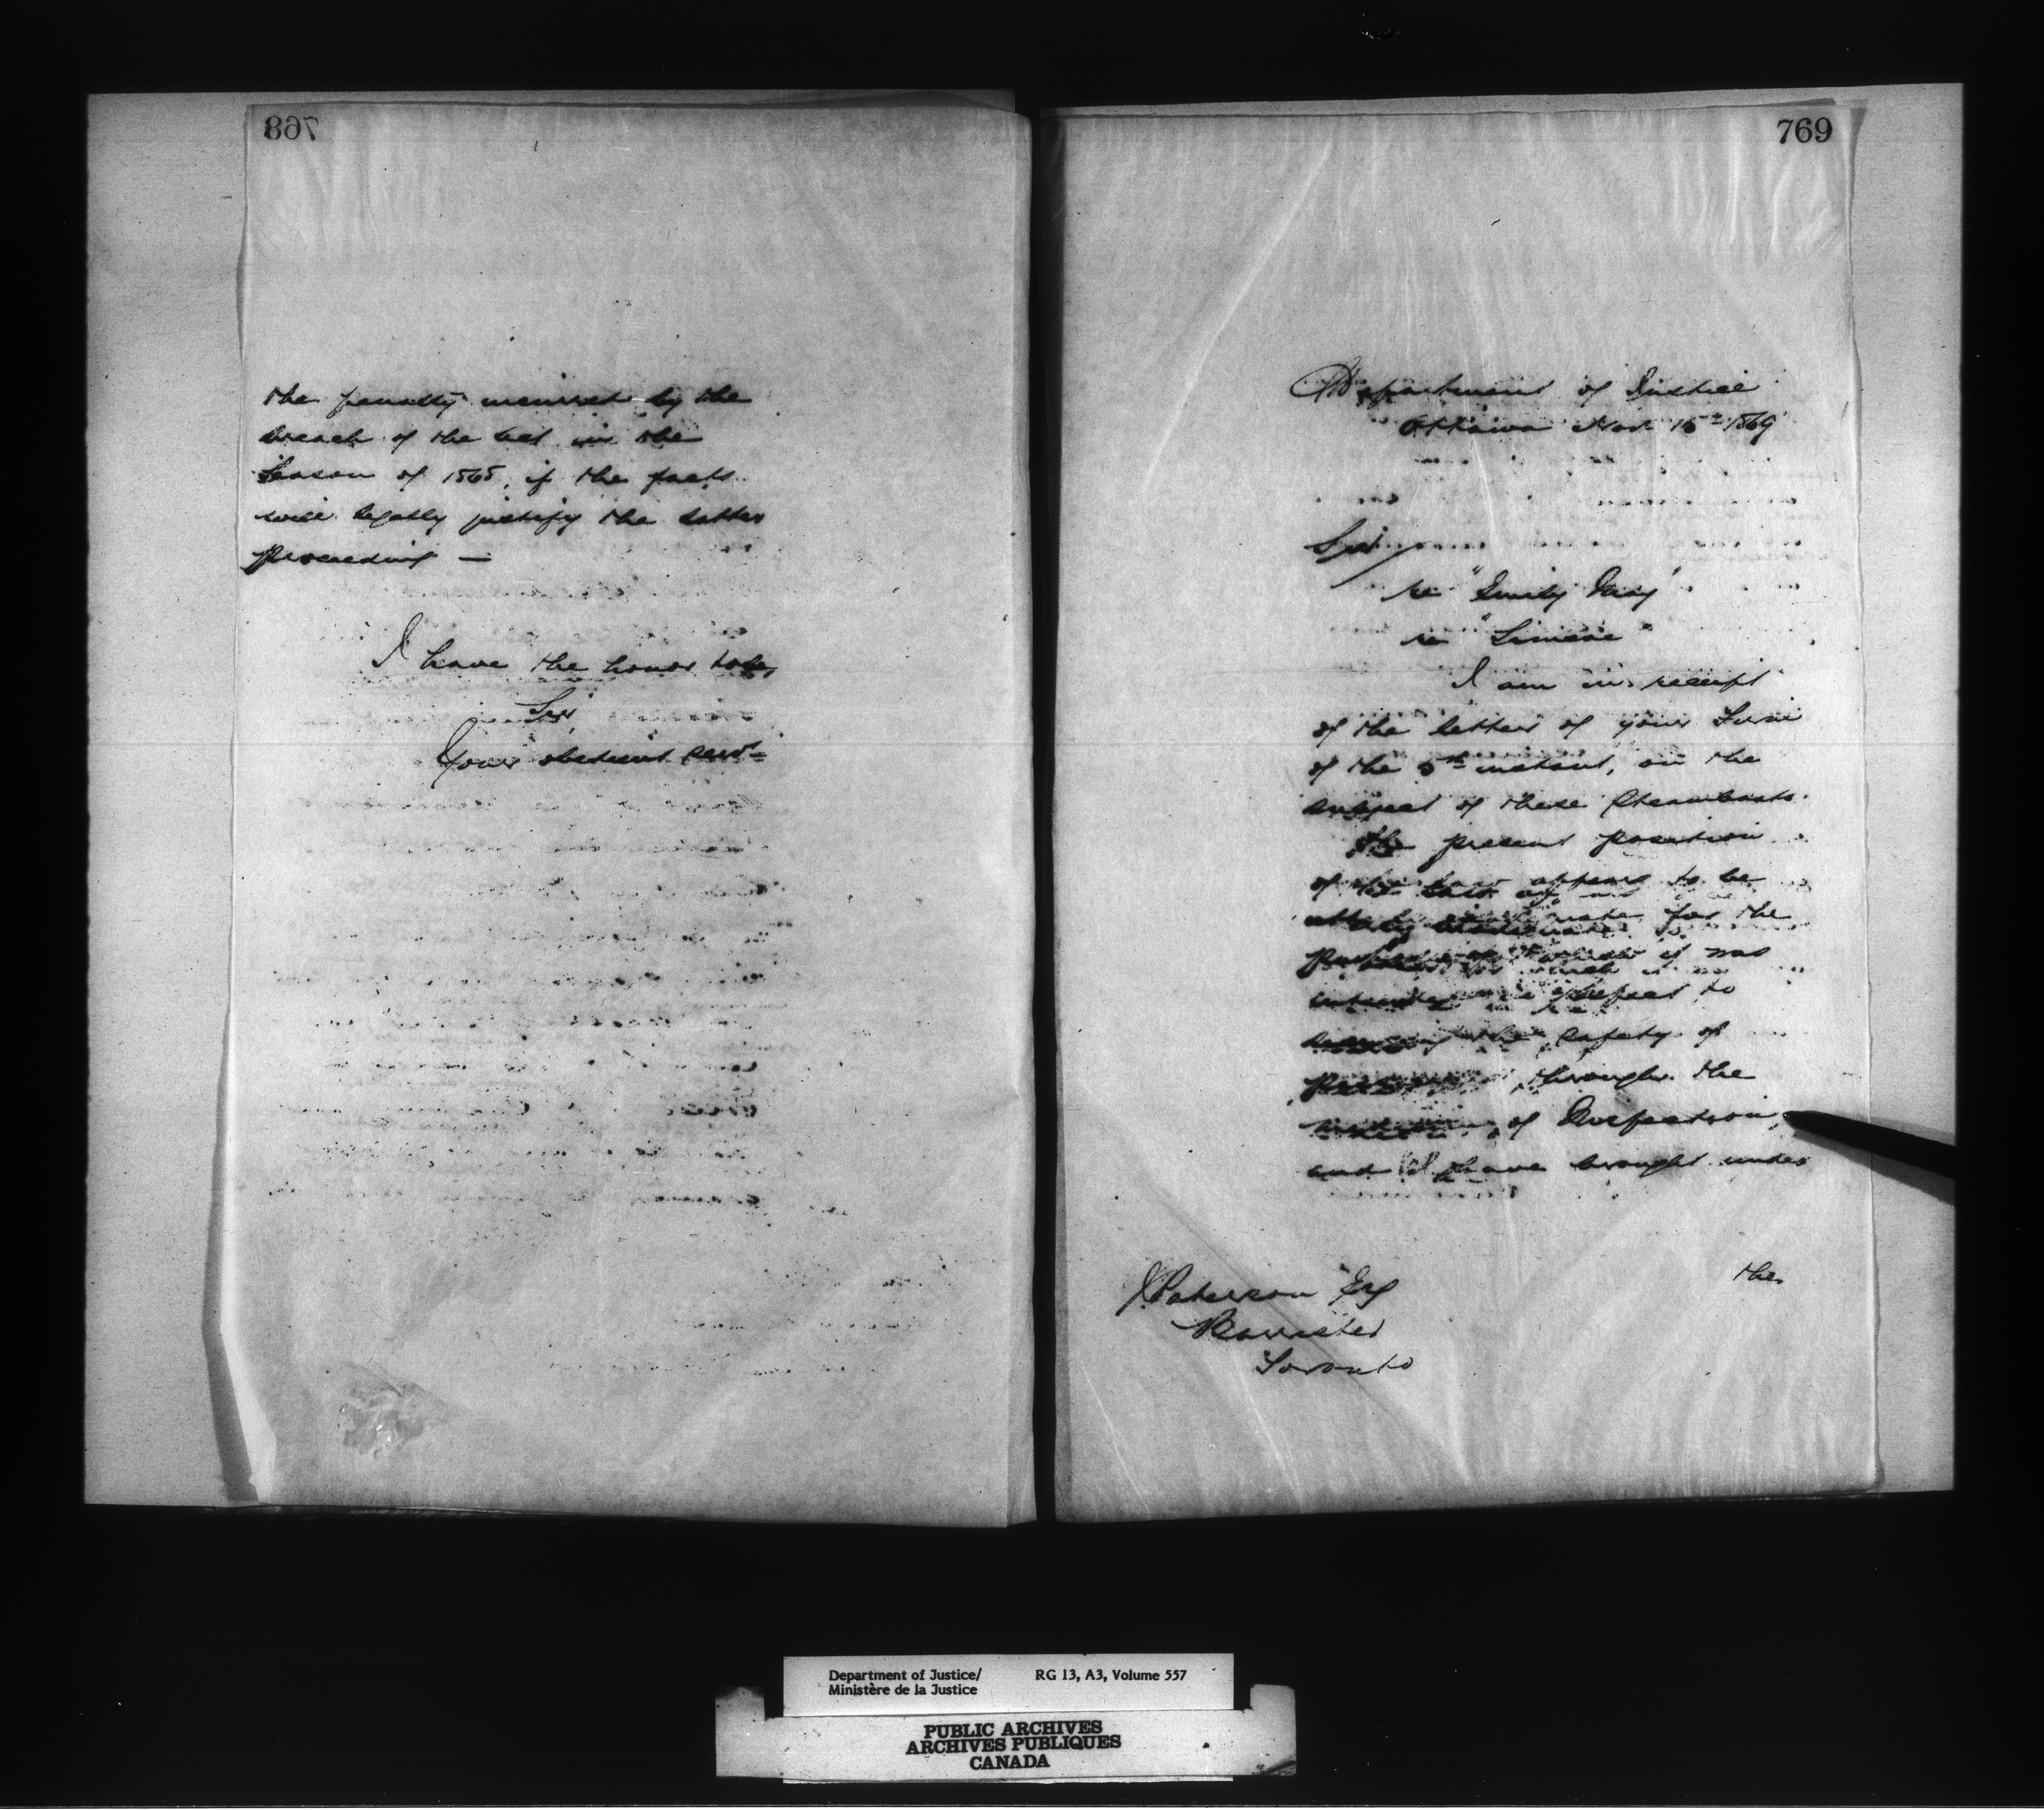 768
the penalty incurred by the
breach of the act in the
Season of 1865, if the facts
will legally justify the latter
proceeding —
I have the honor to be,
Sir,
Your obedient servt
769
Department of Justice
Ottawa Nov 15th 1869
Sir,
re "Emily May"
re "Simcoe"
I am in receipt
of the letter of your Firm
of the 5th instant, on the
subject of these Steamboats.
The present position
of the Law appears to be
utterly inadequate for the
purpose for which it was
intended in respect to
the safety of
through the
of Inspection,
and I have brought under
the
J Paterson Esq
Barrister
Toronto
Department of Justice/
Ministère de la Justice
RG 13, A3, Volume 557
PUBLIC ARCHIVES
ARCHIVES PUBLIQUES
CANADA